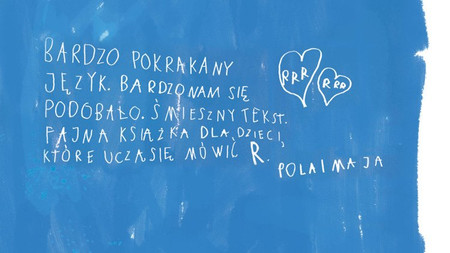 BARDZO POKRAKANY
JĘZYK. BARDZO NAM SIĘ
PODOBAŁO. ŚMIESZNY TEKST.
FAJNA KSIĄŻKA DLA DZIECI,
KTÓRE UCZĄ SIĘ MÓWIĆ R.
RRR
RRR
POLA I MAJA